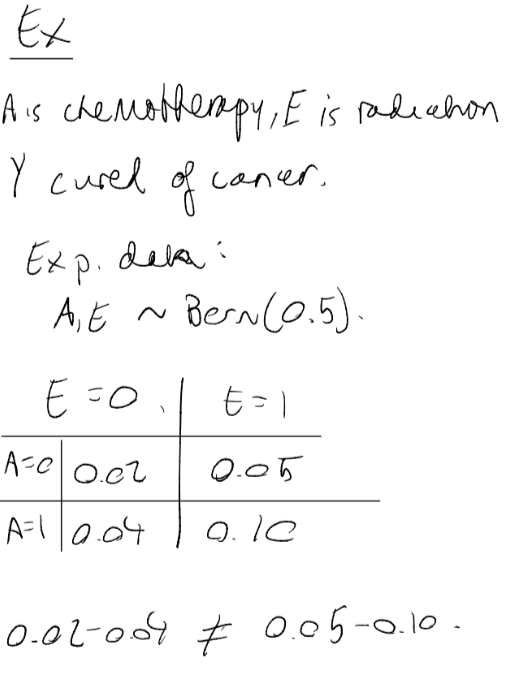 Ex
A is chemotherapy, E is radiation
Y cured of cancer.
Exp. data:
A, E ~ Bern(0.5).
E=0. E=1
A=0 0.02 0.05
A=1 0.04 0.10
0.02-0.04 ≠ 0.05-0.10.